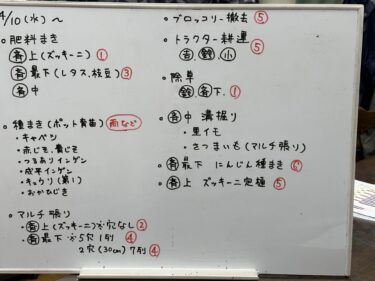 4/10(水)～
・肥料まき
上(ズッキーニ) ①
最下(レタス、枝豆) ③
中
・種まき(ポット育苗) 雨など
・キャベツ
・赤じそ、青じそ
・つるありインゲン
・成平インゲン
・キュウリ(第1)
・おかひじき
・マルチ張り
上(ズッキーニ)が穴なし ②
最下 5穴 1列 ④
2穴(30cm) 7列 ④
・ブロッコリー撤去 ⑤
・トラクター耕運 ⑤
吉 小
・除草
下. ①
中 溝掘り
・里イモ
・さつまいも(マルチ張り)
・最下 にんじん種まき ④
・上 ズッキーニ定植 ⑤